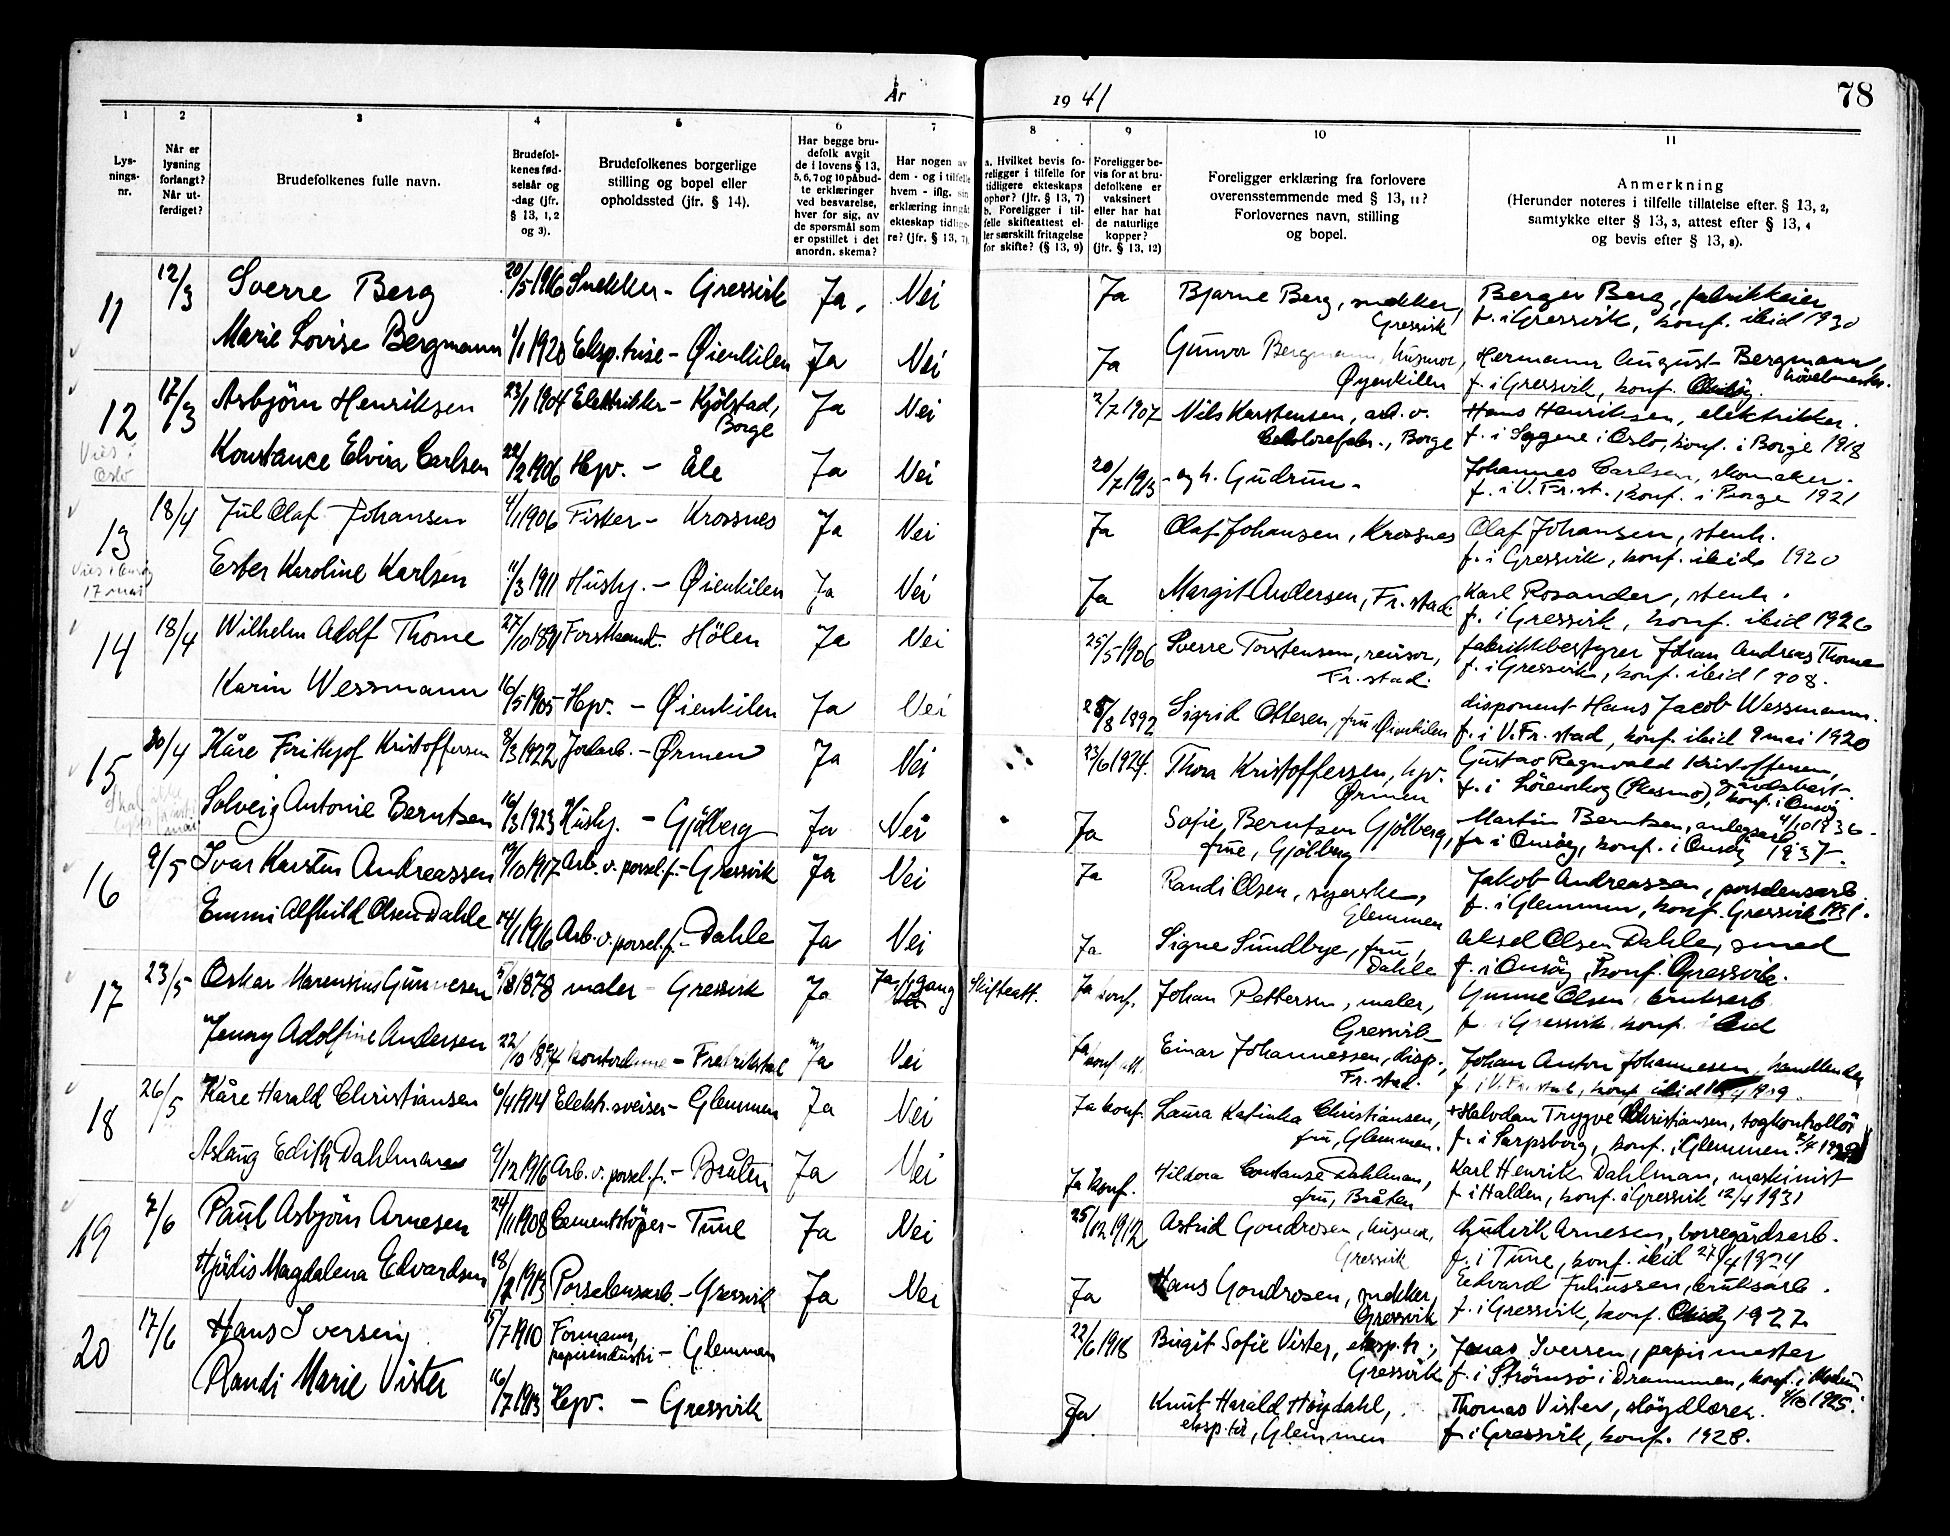 År
19 41
78
1
2
3
4
5
6
7
8
9
10
11
Lys-
nings-
nr.
Når er
lysning
forlangt?
Når ut-
ferdiget?
Brudefolkenes fulle navn.
Brudefol-
kenes fød-
selsår og
-dag (jfr.
§ 13, 1, 2
og 3).
Brudefolkenes borgerlige
stilling og bopel eller
opholdssted (jfr. § 14).
Har begge bru-
defolk avgit
de i lovens § 13,
5, 6, 7 og 10 påbud-
te erklæringer
ved besvarelse,
hver for sig, av
de spørsmål som
er opstillet i det
anordn. skema?
Har nogen av
dem - og i tilfelle
hvem - iflg. sin
erklæring inngåt
ekteskap tidlige-
re? (jfr. § 13, 7).
a. Hvilket bevis fo-
religger i tilfelle for
tidligere ekteskaps
ophør? (jfr. § 13, 7)
b. Foreligger i til-
felle skifteattest el-
ler særskilt fritagelse
for skifte? (§ 13, 9)
Foreligger be-
vis for at bru-
defolkene er
vaksinert
eller har hat
de naturlige
kopper?
(jfr. § 13, 12)
Foreligger erklæring fra forlovere
overensstemmende med § 13, 11?
Forlovernes navn, stilling
og bopel.
Anmerkning
(Herunder noteres i tilfelle tillatelse efter. § 13, 2,
samtykke efter § 13, 3, attest efter § 13, 4
og bevis efter § 13, 8).
11 12/3 Sverre Berg 20/5 1916 Snekker - Gressvik Ja. Nei Ja Bjarne Berg, snekker, Gressvik Berger Berg, fabrikkeier
f. i Gressvik, konf. ibid 1930
Marie Lovise Bergmann 1/1 1920 Eksp.trise - Øienkilen Ja Nei Ja Gunvor Bergmann, husmor, Øyenkilen Hermann August Bergmann, hövelmester.
f. i Gressvik, konf. Onsöy.
12 17/3 Asbjörn Henriksen 23/1 1904 Elektriker - Kjölstad, Borge Ja Nei 2/7 1907 Nils Karstensen, arb. v. Celulosefabr., Borge Hans Henriksen, elektrikker.
f. i Sagene i Oslo, konf. i Borge 1918
Vies i
Oslo
Konstance Elvira Carlsen 22/2 1906 Hpv. - Åle Ja Nei 20/7 1913 - og h. Gudrun - Johannes Carlsen, skomaker.
f. i V. Fr.st., konf. i Borge 1921
13 18/4 Jul Olaf Johansen 4/1 1906 Fisker - Krossnes Ja Nei Ja Olaf Johansen, Krossnes Olaf Johansen, stenh.
f. i Gressvik, konf. ibid 1920
Vies i Onsöy
17 mai
Ester Karoline Karlsen 11/3 1911 Hushj. - Øienkilen Ja Nei Ja Margit Andersen, Fr.stad. Karl Rosander, stenh.
f. i Gressvik, konf. ibid 1926
14 18/4 Wilhelm Adolf Thorne 27/10 1891 Forstkand. Hölen Ja Nei 25/5 1906 Sverre Torstensen, revisor, Fr.stad. fabrikkbestyrer Johan Andreas Thorne
f. i Gressvik, konf. ibid 1908.
Karin Wessmann 16/5 1905 Hpv. - Øienkilen Ja Nei 28/8 1892 Sigrid Ottesen, fru, Øienkilen disponent Hans Jacob Wessmann.
f. i V. Fr. stad, konf. ibid 9 mai 1920
15 30/4 Kåre Frithjof Kristoffersen 8/3 1922 Jordarb. - Ørmen Ja Nei 23/6 1924. Thora Kristoffersen, hpv. Ørmen Gustav Ragnvald Kristoffersen, gårdsbest.
f. i Lörenskog, konf. i Onsöy 4/10 1936.
Solveig Antonie Berntsen 16/3 1923 Hushj. - Gjölberg Ja Nei Ja Sofie Berntsen Gjölberg, frue, Gjölberg Martin Berntsen, anlegsarb.
f. i Onsöy, konf. i Onsöy 1937.
16 9/5 Ivar Karsten Andreassen 19/10 1917 Arb. v. porsel.f. - Gressvik Ja Nei Ja Randi Olsen, syerske, Glemmen Jakob Andreassen, porselensarb.
f. i Glemmen, konf. Gressvik 1931.
Emmi Alfhild Olsen Dahle 14/1 1916 Arb. v. porsel.f. - Dahle Ja Nei Ja Signe Sundbye, fru, Dahle Aksel Olsen Dahle, smed
f. i Onsöy, konf. Gressvik.
17 23/5 Oskar Marensius Gunnesen 5/8 1878 maler - Gressvik Ja Ja, 1 gang Skifteatt. Ja konf. Johan Pettersen, maler, Gressvik Gunne Olsen, bruksarb
f. i Gressvik, konf. ibid
Jenny Adolfine Andersen 22/10 1894 kontordame - Fredrikstad Ja Nei Ja konf. att. Einar Johannessen, disp., Fr.stad. Johan Anton Johannesen, handlende
f. i V. Fr.stad, konf. ibid 1909.
18 26/5 Kåre Harald Christiansen 6/4 1914 Elektr. sveiser - Glemmen Ja Nei Ja konf. Laura Katinka Christiansen, fru, Glemmen. Halvdan Trygve Christiansen, togkontrollör
f. i Sarpsborg, konf. i Glemmen
Aslaug Edith Dahlman 9/12 1916 Arb. v. porsel.f. - Bråten Ja Nei Ja konf. Hildora Constanse Dahlman, fru, Bråten Karl Henrik Dahlman, maskinist
f. i Halden, konf. i Gressvik 12/4 1931
19 7/6 Paul Asbjörn Arnesen 24/1 1908 Cementstöper - Tune Ja Nei 25/12 1912 Astrid Gondrosen, husmor, Gressvik Ludvik Arnesen, borregårdsarb.
f. i Tune, konf. ibid 27/4 1924
Hjördis Magdalena Edvardsen 18/2 1913 Porselensarb. - Gressvik Ja Nei Ja Hans Gondrosen, snekker, Gressvik Edvard Juliussen, bruksarb.
f. i Gressvik, konf. Onsöy 1927
20 17/6 Hans Iversen 15/7 1910 Formann, papirindustri - Glemmen 22/6 1918 Birgit Sofie Vister, eksp.tr., Gressvik Jonas Iversen, papirmester
f. i Strömsö i Drammen, konf. i Modum 4/10 1925.
Randi Marie Vister 16/7 1913 Hpv. - Gressvik Ja Knut Harald Höydahl, eksp.tör, Glemmen Thomas Vister, slöydlærer.
f. i Gressvik, konf. 1928.